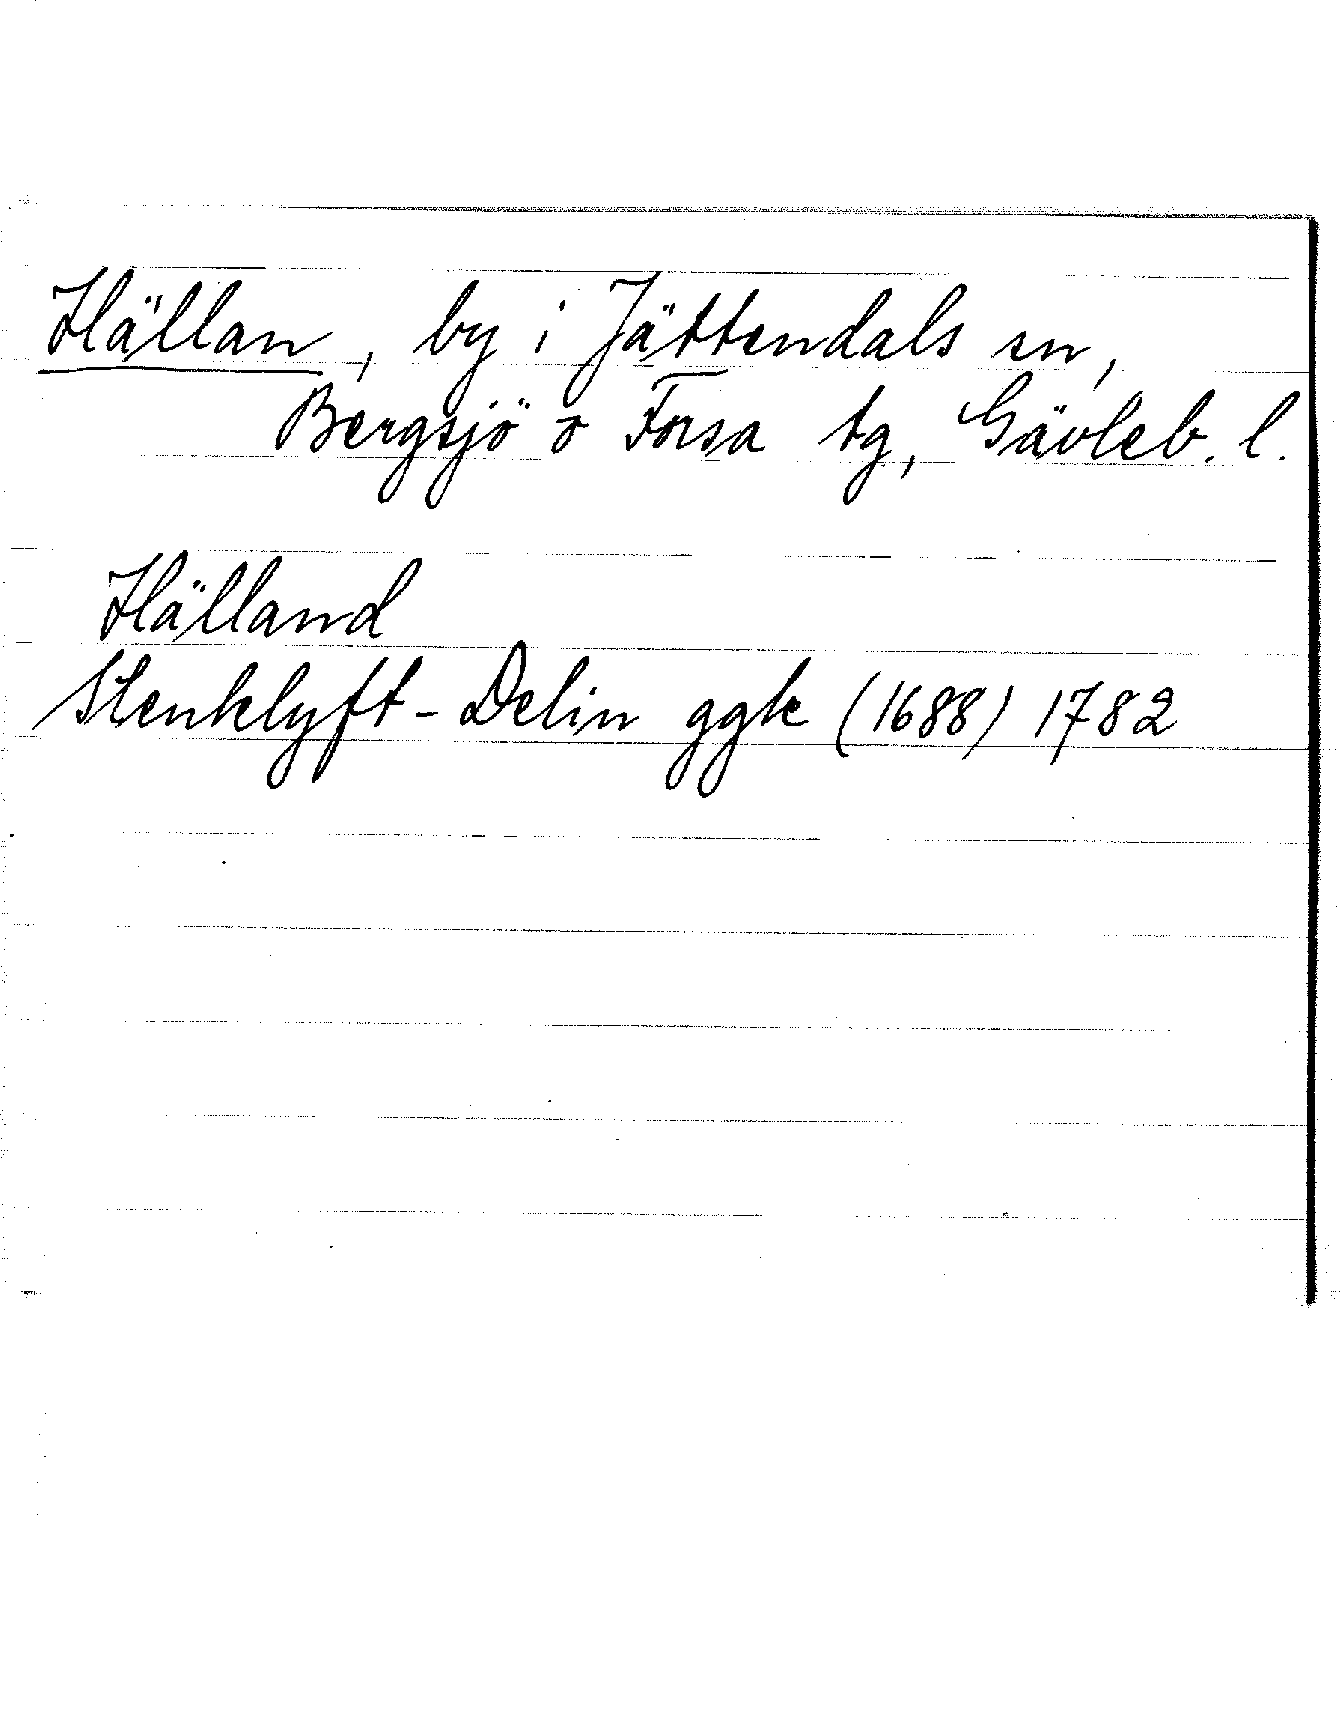 Hällan, by i Jättendals sn,
Bergsjö o Forsa tg, Gävleb. l.
Hälland
Stenklyft-Delin ggk (1688) 1782